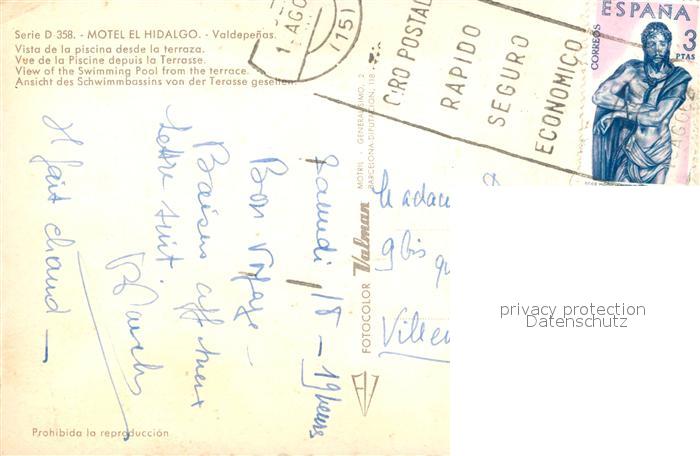 Serie D 358. - MOTEL EL HIDALGO. - Valdepeñas.
Vista de la piscina desde la terraza.
Vue de la Piscine depuis la Terrasse.
View of the Swimming Pool from the terrace.
Ansicht des Schwimmbassins von der Terasse gesehen.
AGO
(15)
GIRO POSTAL
RAPIDO
SEGURO
ECONOMICO
ESPAÑA
CORREOS
3
PTAS
Samedi 18 - 19 heures
Bon voyage -
Baisers
Lettre suit
Il fait chaud -
FOTOCOLOR Valman
MOTRIL - GENERALISIMO, 2
BARCELONA-DIPUTACION, 118
Madam
9 bis
Ville
privacy protection
Datenschutz
Prohibida la reproducción